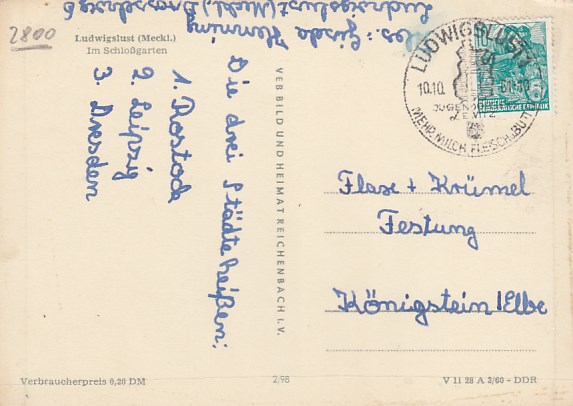 2800
Ludwigslust (Meckl.)
Im Schloßgarten
Abs.: Gisela Henning
Ludwigslust (Meckl.)
Die drei Städte heißen:
1. Rostock
2. Leipzig
3. Dresden
VEB BILD UND HEIMAT REICHENBACH i. V.
LUDWIGSLUST
10.10.
MEHR MILCH FLEISCH BUTTER
10
DEUTSCHE
DEMOKRATISCHE REPUBLIK
Flax + Krümel
Festung
Königstein/Elbe
Verbraucherpreis 0,20 DM
2/98
V 11 28 A 3/60 – DDR